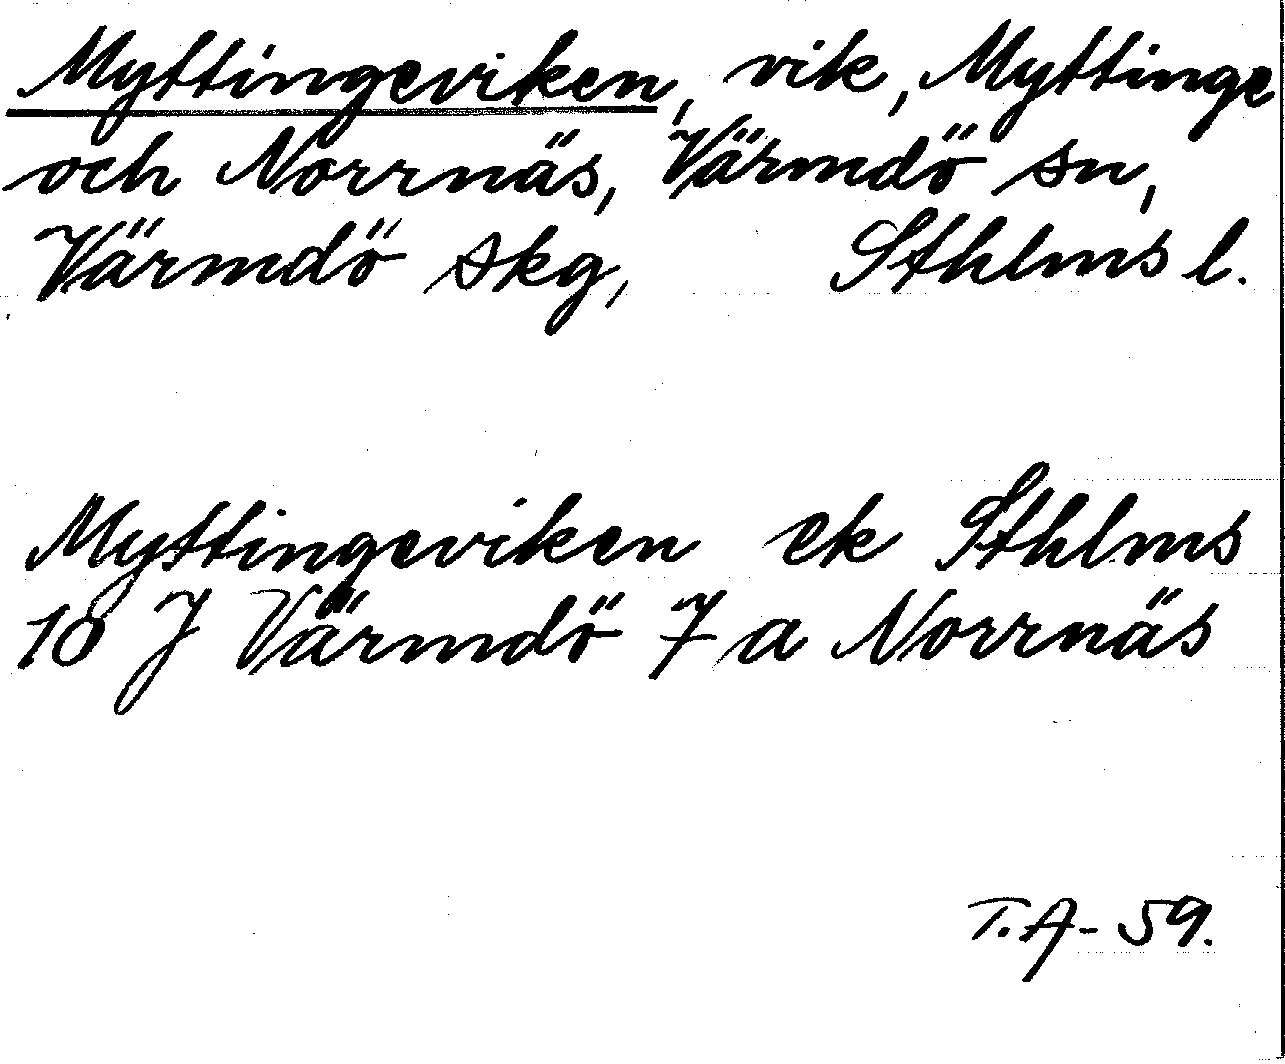 Myttingeviken, vik, Myttinge
och Norrnäs, Värmdö sn,
Värmdö skg, Sthlms l.
Myttingeviken ek Sthlms
10 J Värmdö 7 a Norrnäs
T.A-59.